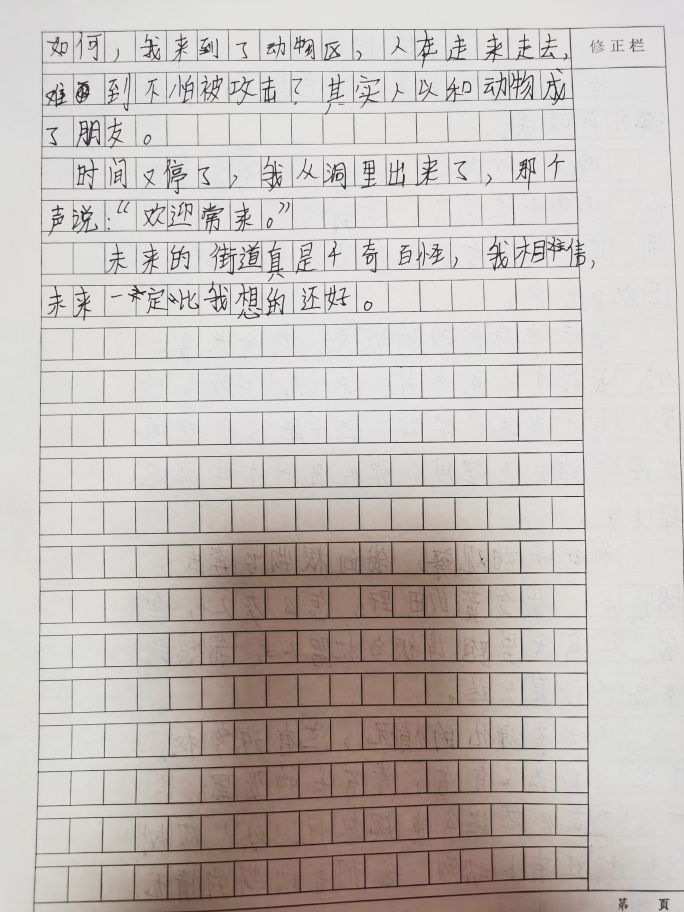 如何，我来到了动物区，人在走来走去，
修正栏
难到不怕被攻击？其实人以和动物成
了朋友。
时间又停了，我从洞里出来了，那个
声说：“欢迎常来。”
未来的街道真是千奇百怪，我相信，
未来一定比我想的还好。
第 页